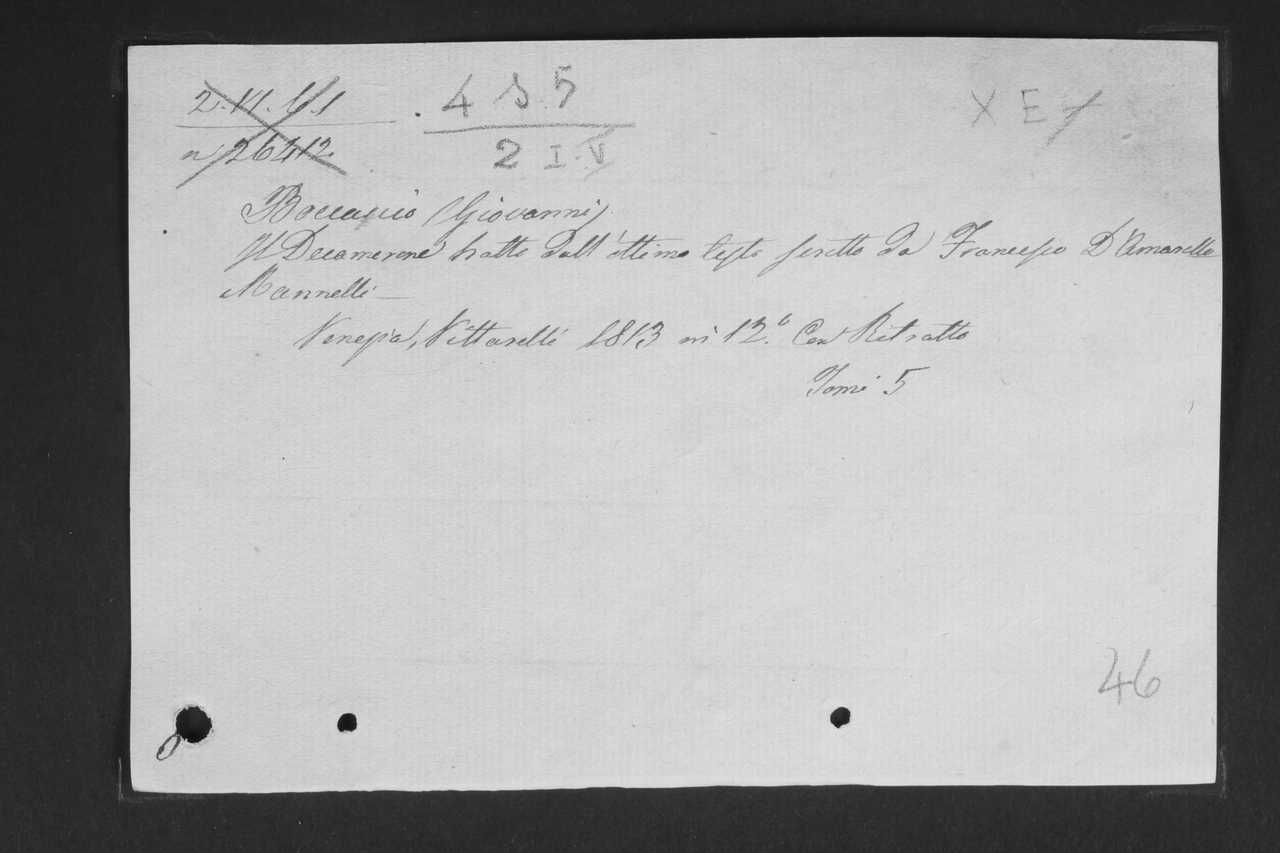 2.17.
n 26412
4 S 5
2 I-V
X E
Boccaccio (Giovanni)
Il Decamerone tratto dall'ottimo testo scritto da Francesco D'Amaretto
Mannelli —
Venezia, Vittarelli 1813 in 12.° Con Ritratto
Tomi 5
46